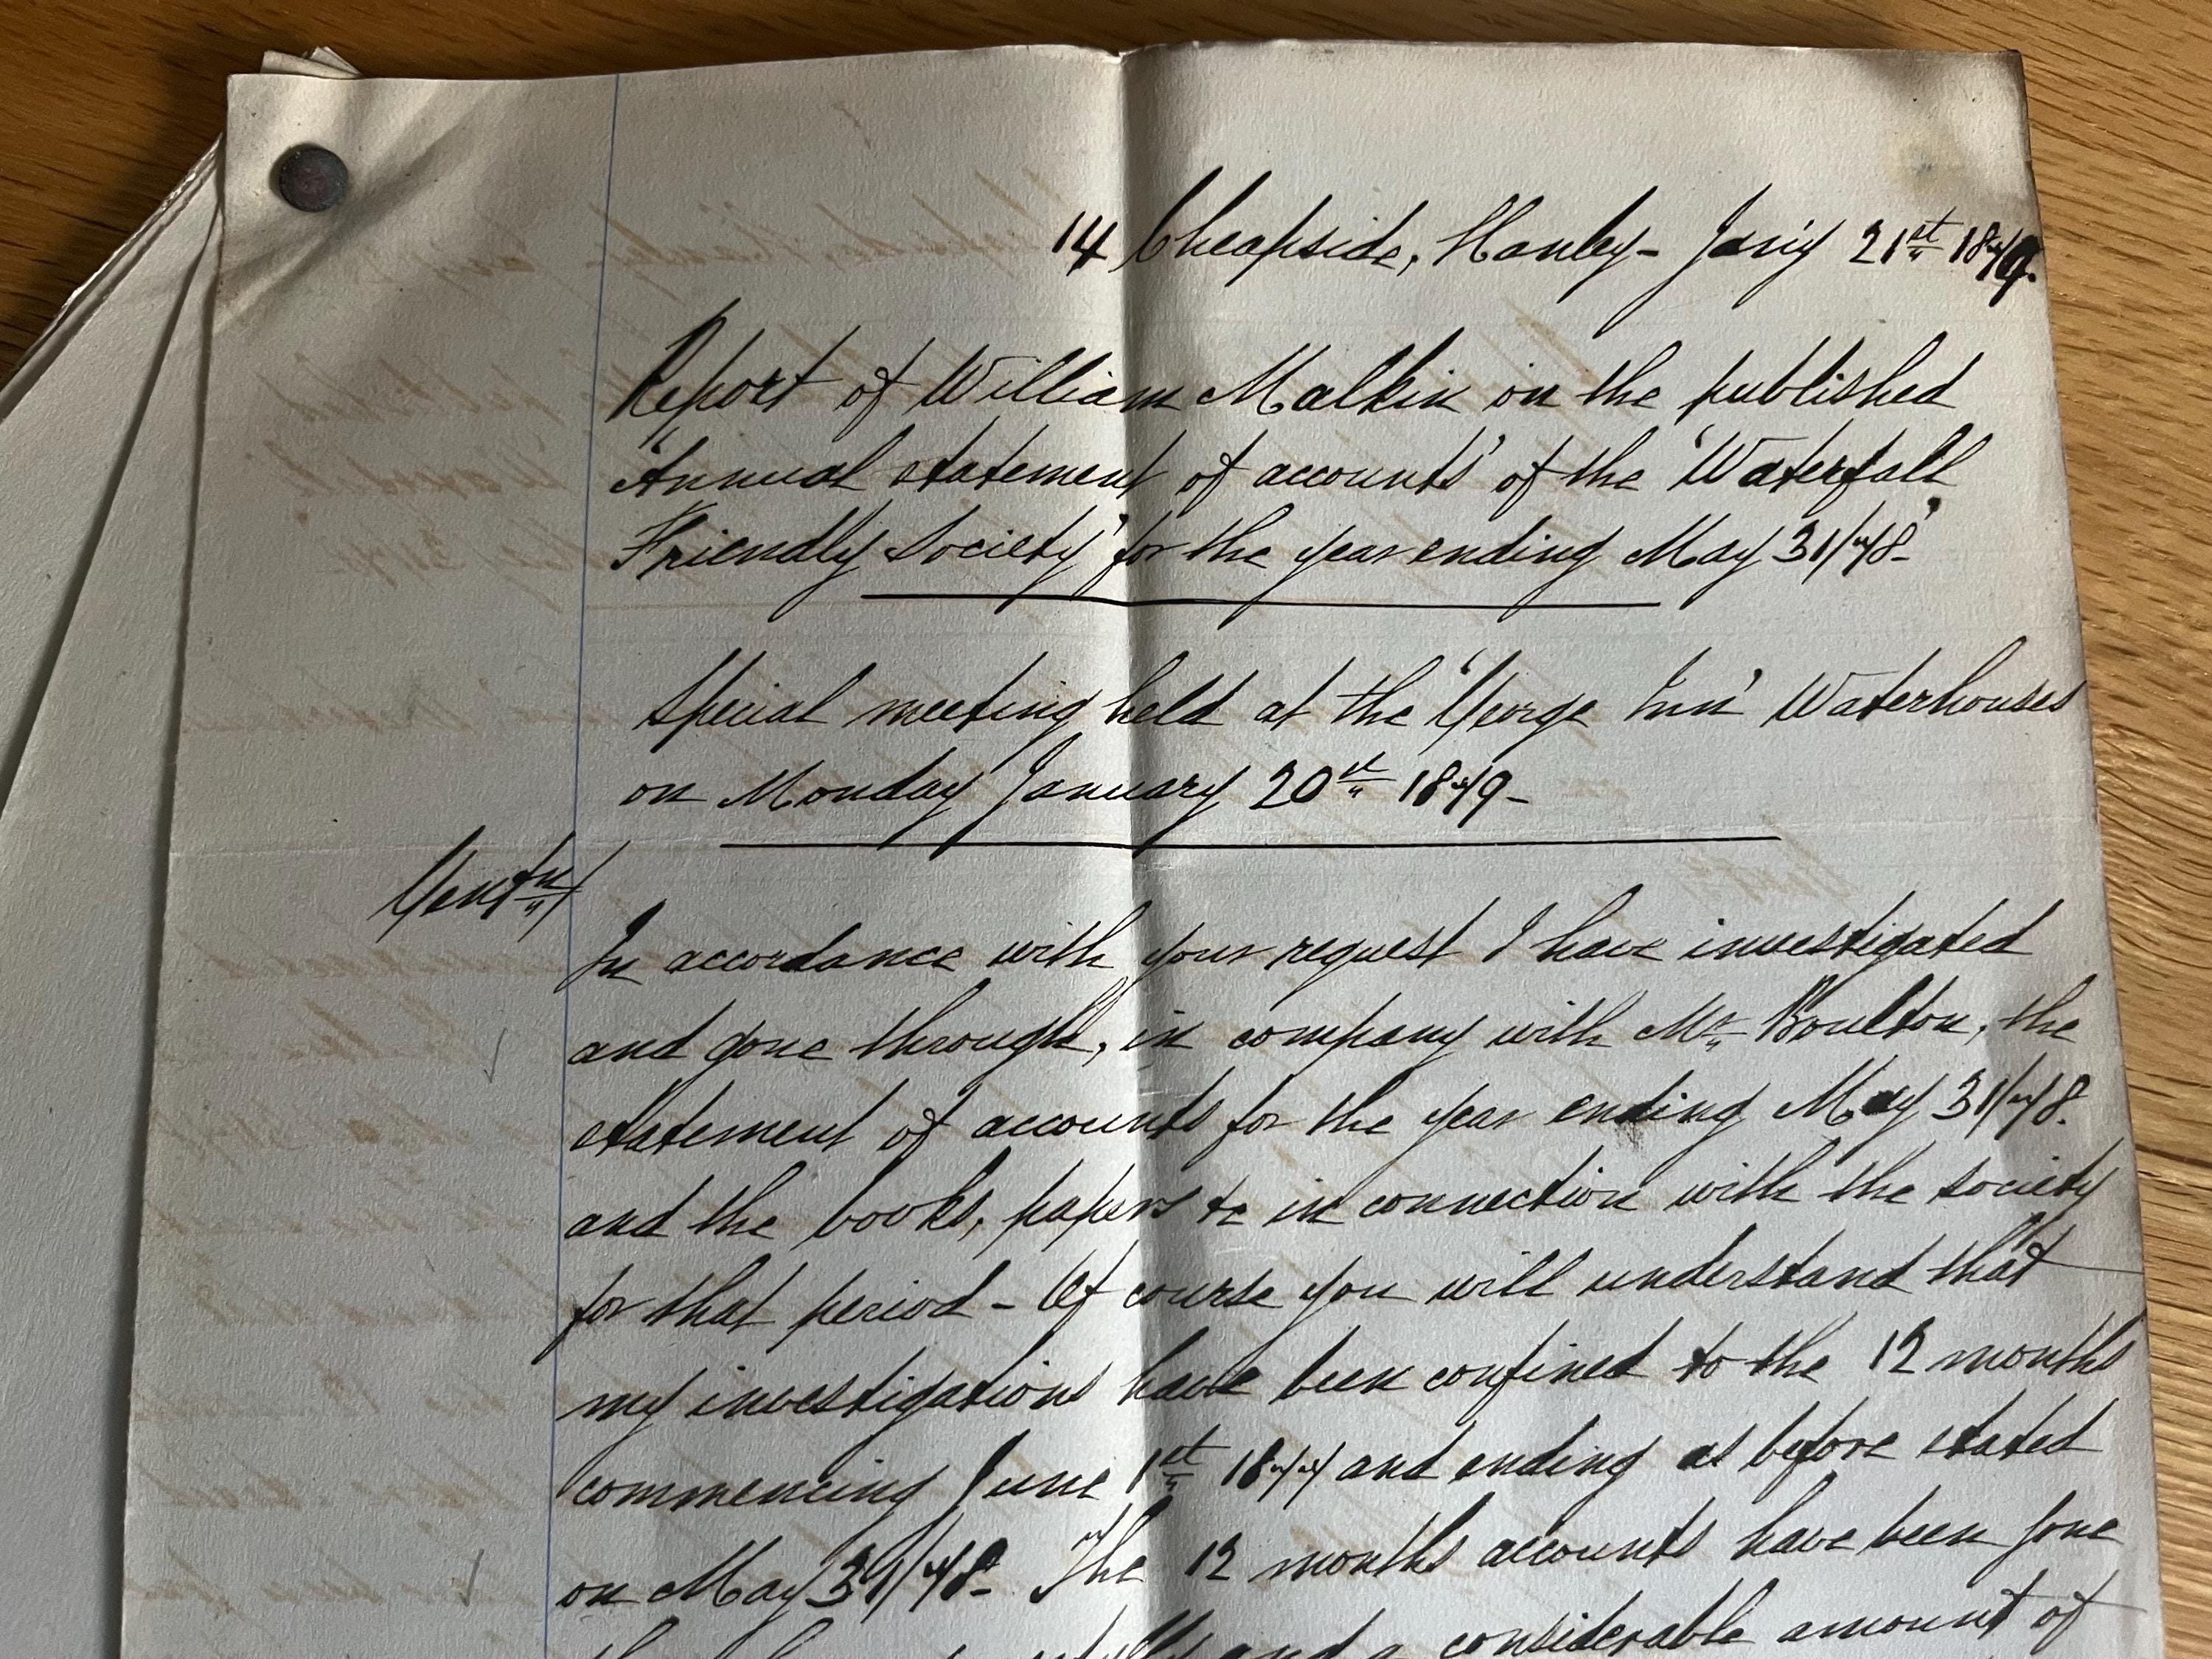 14 Cheapside, Hanley - Jan'y 21st 1879.
Report of William Malkin on the published
'Annual statement of accounts' of the 'Waterfall
Friendly Society' for the year ending May 31/78'
Special meeting held at the 'George Inn' Waterhouses
on Monday January 20st 1879 -
Gentn/
In accordance with your request I have investigated
and gone through, in company with Mr Boulton, the
statement of accounts for the year ending May 31/78.
and the books, papers &c in connection with the society
for that period - Of course you will understand that
my investigations have been confined to the 12 months
commencing June 1st 1877 and ending as before stated
on May 31/78 - The 12 months accounts have been gone
and a considerable amount of